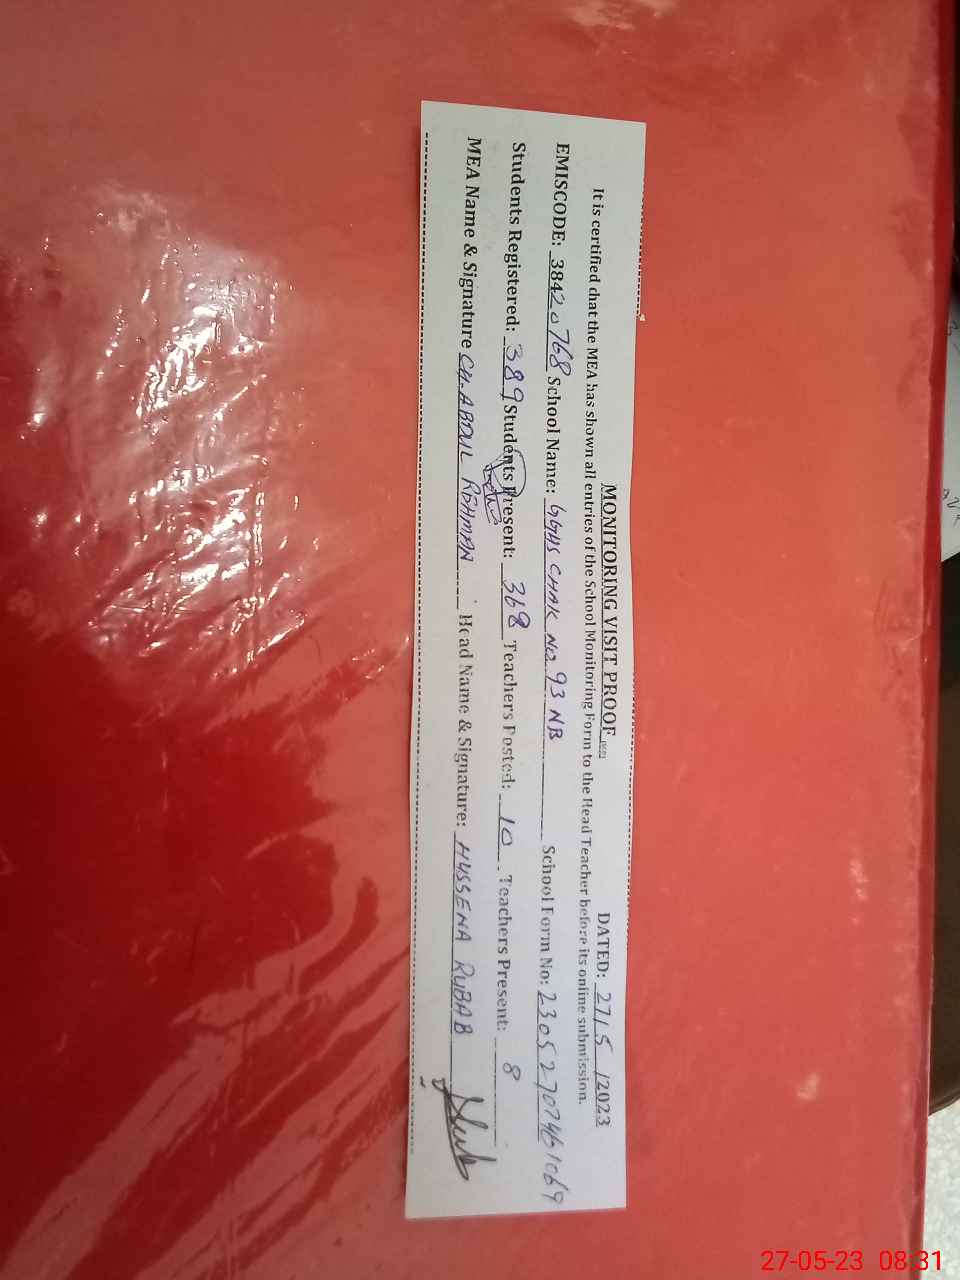 MONITORING VISIT PROOF
DATED: 27/5/2023
It is certified that the MEA has shown all entries of the School Monitoring Form to the Head Teacher before its online submission.
EMISCODE: 38420768 School Name: GGHS CHAK No. 93 NB School Form No: 23052707461069
Students Registered: 389 Students Present: 368 Teachers Posted: 10 Teachers Present: 8
MEA Name & Signature CH. ABDUL REHMAN Head Name & Signature: HUSSENA RUBAB
27-05-23 08:31